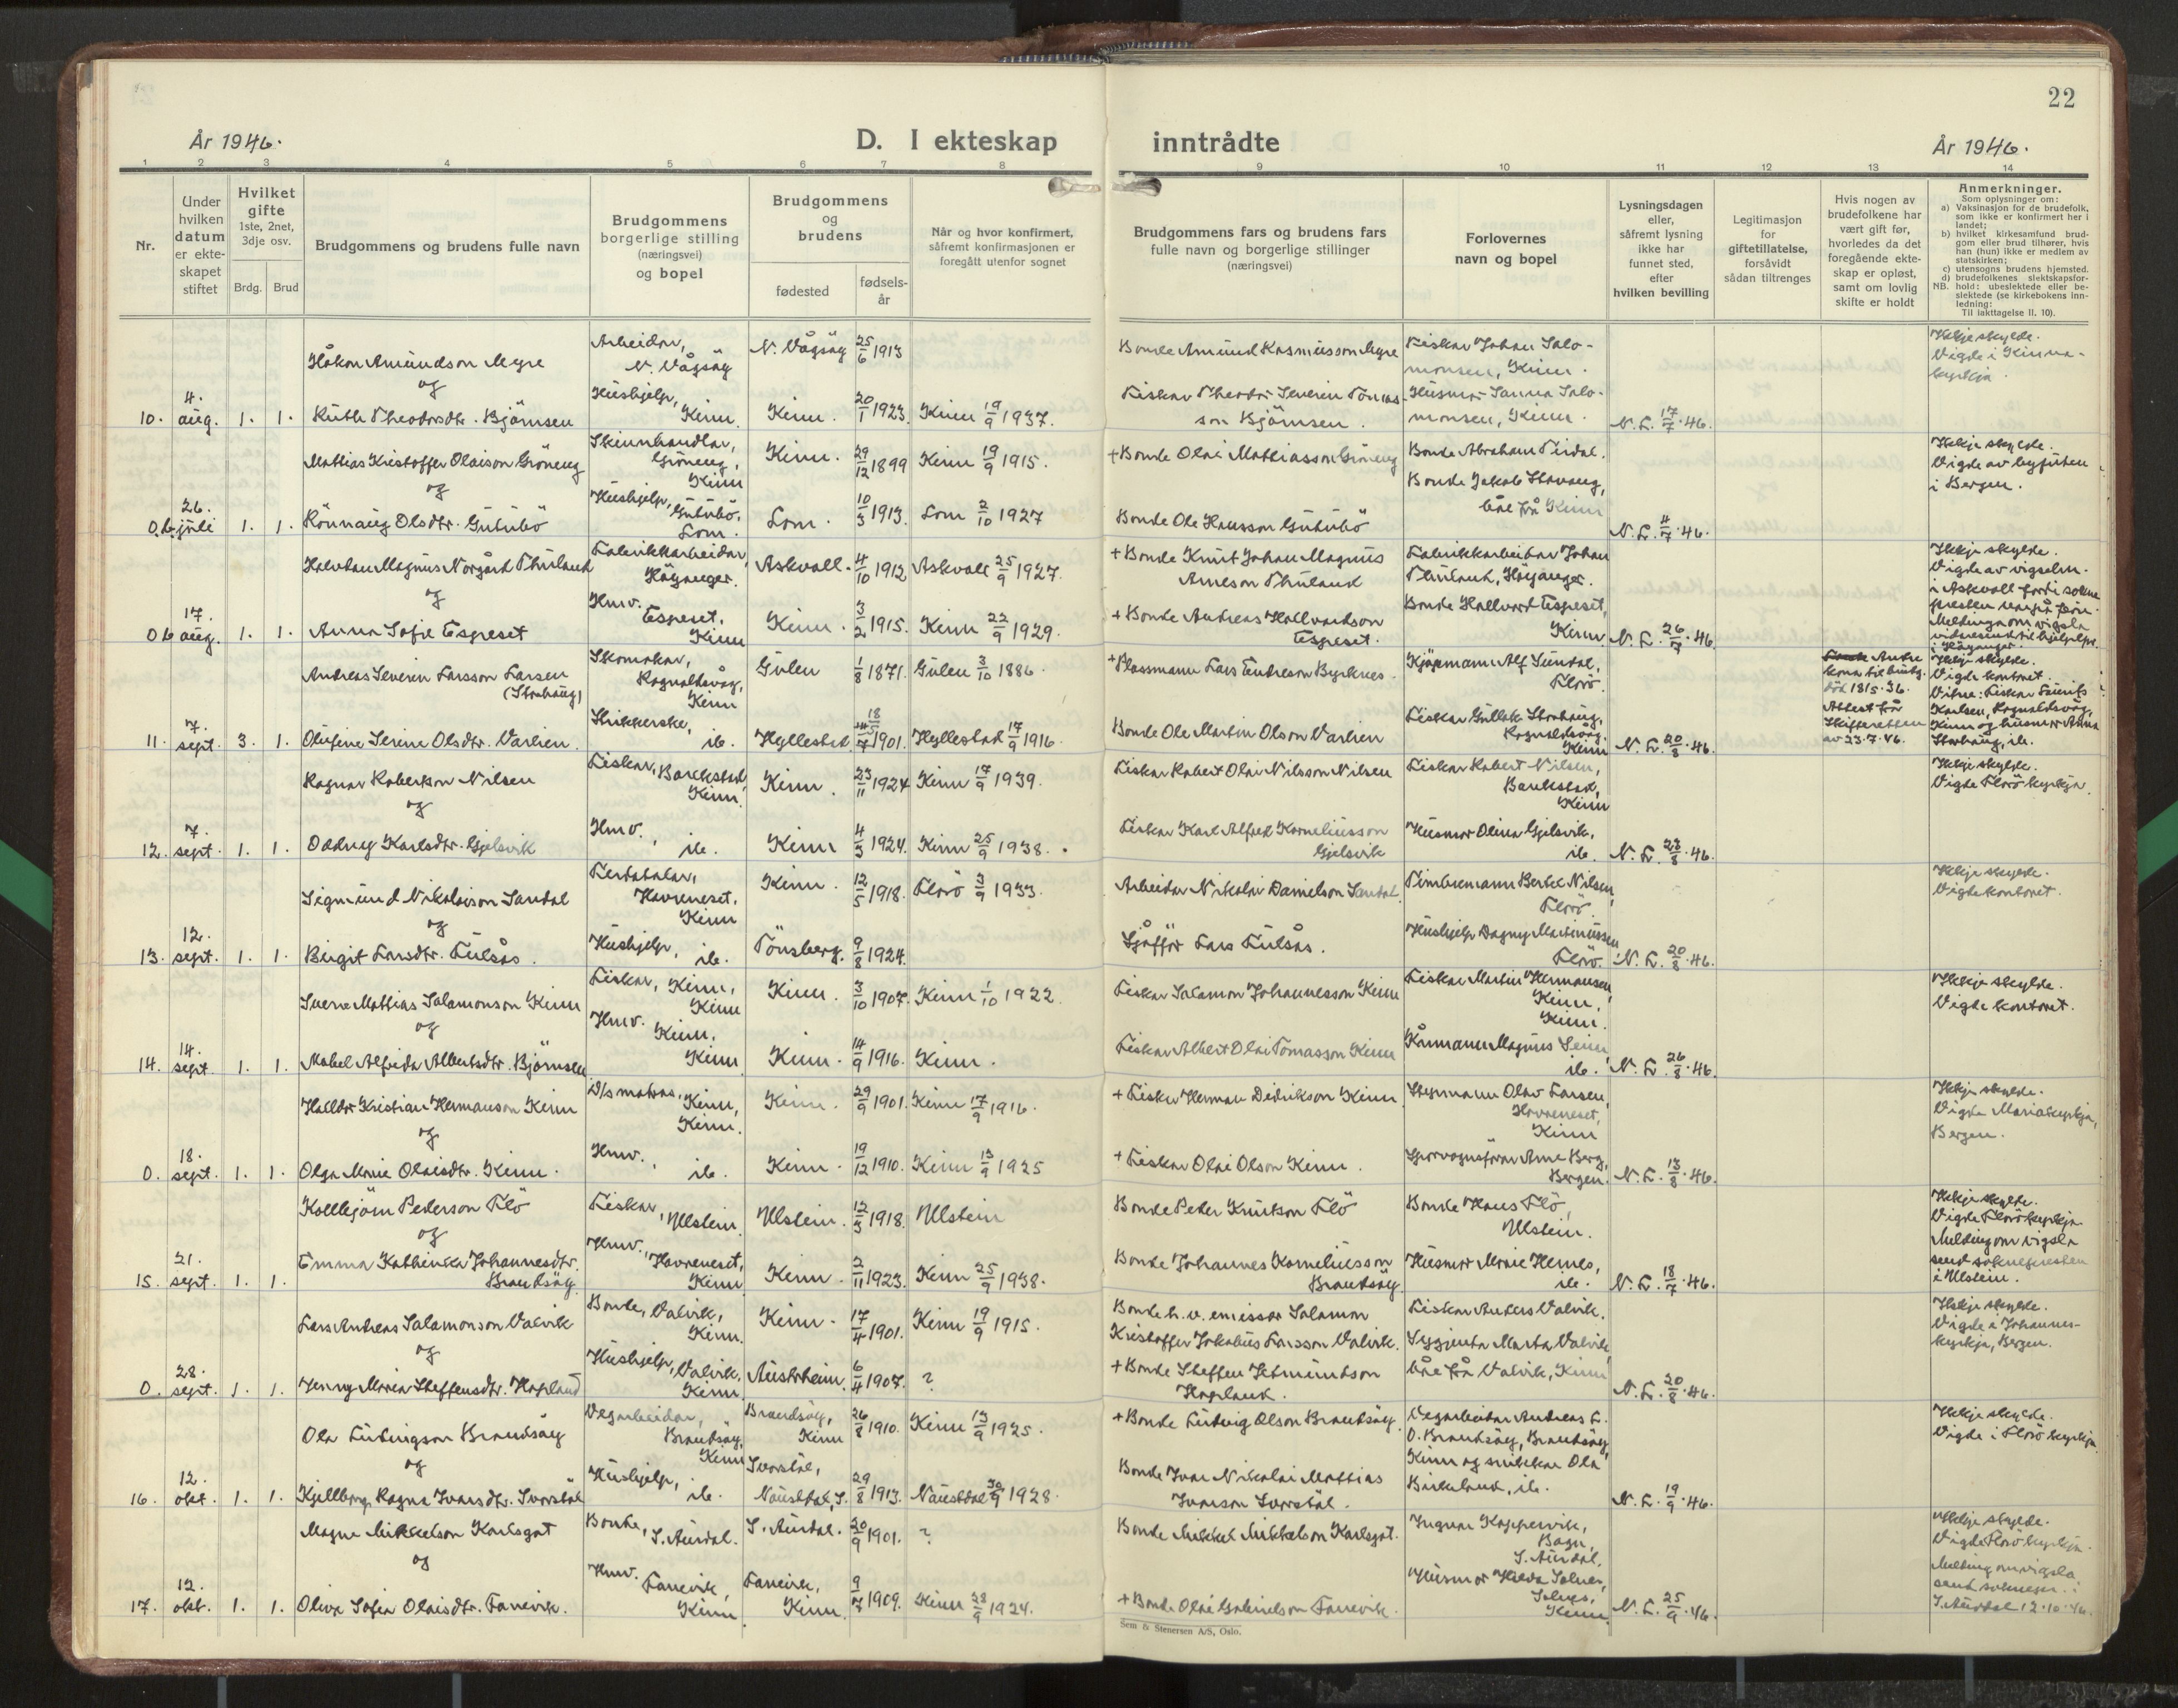 22
År 1946.
D. I ekteskap inntrådte
År 1946.
1 2 3 4 5 6 7 8 9 10 11 12 13 14
Nr.
Under hvilken datum er ekte-skapet stiftet
Hvilket gifte
1ste, 2net, 3dje osv.
Brdg. Brud
Brudgommens og brudens fulle navn
Brudgommens borgerlige stilling (næringsvei) og bopel
Brudgommens og brudens
fødested
fødsels-år
Når og hvor konfirmert, såfremt konfirmasjonen er foregått utenfor sognet
Brudgommens fars og brudens fars fulle navn og borgerlige stillinger (næringsvei)
Forlovernes navn og bopel
Lysningsdagen eller, såfremt lysning ikke har funnet sted, efter hvilken bevilling
Legitimasjon for giftetillatelse, forsåvidt sådan tiltrenges
Hvis nogen av brudefolkene har vært gift før, hvorledes da det foregående ekte-skap er opløst, samt om lovlig skifte er holdt
Anmerkninger.
Som oplysninger om:
a) Vaksinasjon for de brudefolk, som ikke er konfirmert her i landet;
b) hvilket kirkesamfund brud-gom eller brud tilhører, hvis han (hun) ikke er medlem av statskirken;
c) utensogns brudens hjemsted.
d) brudefolkenes slektskapsfor-hold: ubeslektede eller be-slektede (se kirkebokens inn-ledning:
NB.
Til iakttagelse II. 10).
Håkon Amundson Myre
Arbeidar, N. Vågsøy
N. Vågsøy 25/6 1913
Bonde Amund Rasmusson Myre
Fiskar Johan Salo-
monsen, Kinn.
Ikkje skylde.
Vigde i Kinna-
kyrkja.
og
10. 4. aug. 1. 1. Ruth Theodorsdtr. Bjørnsen
Hushjelp, Kinn.
Kinn. 20/1 1923. Kinn 19/9 1937.
Fiskar Theodor Severin Tomas-
son Bjørnsen.
Husmor Sanna Salo-
monsen, Kinn.
N. L. 17/7 46.
Mathias Kristoffer Olaison Grøneng
Skinnhandlar, Grøneng, Kinn
Kinn. 29/12 1899 Kinn 19/9 1915.
+ Bonde Olai Mathiasson Grøneng
Bonde Abraham Eirdal.
Ikkje skylde.
Vigde av byfuten
i Bergen.
og
0.6 26. juli 1. 1. Rönnaug Olsdtr. Gutubö
Hushjelp, Gutubö, Lom.
Lom. 10/3 1913. Lom 2/10 1927
Bonde Ole Hansson Gutubö
Bonde Jakob Stavang,
båe frå Kinn
N. L. 4/7 46.
Halvdan Magnus Norgård Thuland
Fabrikkarbeidar, Höyanger.
Askvoll. 4/10 1912 Askvoll 25/9 1927.
+ Bonde Knut Johan Magnus
Arneson Thuland
Fabrikkarbeidar Johan
Thuland, Höyanger.
Ikkje skylde.
Vigde av vigselm.
i Askvoll fordi sokne
presten var på ferie.
Meldinga om vigsla
vidaresend til hjelpepr.
i Höyanger.
og
0.6 17. aug. 1. 1. Anna Sofie Espeset
Hmv. Espeset, Kinn
Kinn. 3/2 1915. Kinn 22/9 1929.
+ Bonde Andreas Hallvardson
Espeset.
Bonde Hallvard Espeset,
Kinn.
N. L. 26/7 46.
Andreas Severin Larsson Larsen
(Storhaug)
Skomakar, Rognaldsvåg, Kinn
Gulen 1/8 1871. Gulen 3/10 1886.
+ Plassmann Lars Endreson Byrknes
Kjöpmann Alf Sundal,
Florö.
Andre
kona til brudg.
död 18/5.36.
Attest frå
Skifteretten
av 23.7.46.
Ikkje skylde.
Vigde kontoret.
Vitne: Fiskar Laurits
Karlsen, Rognaldsvåg,
Kinn og husmor Anna
Storhaug, ib.
11. 7. sept. 3. 1. Olufine Serine Olsdtr. Varlien.
Strikkerske, ib.
Hyllestad 18/7 1901. Hyllestad 17/9 1916.
Bonde Ole Martin Olson Varlien
Fiskar Gullak Storhaug,
Rognaldsvåg,
Kinn
N. L. 20/8 46.
Ragnar Robertson Nilsen
Fiskar, Barekstad, Kinn.
Kinn. 23/11 1924 Kinn 17/9 1939.
Fiskar Robert Olai Nilsson Nilsen
Fiskar Robert Nilsen,
Barekstad,
Kinn
Ikkje skylde.
Vigde Florö kyrkja.
og
12. 7. sept. 1. 1. Oddny Karlsdtr. Gjelsvik
Hmv., ib.
Kinn 4/3 1924. Kinn 25/9 1938.
Fiskar Karl Alfred Korneliusson
Gjelsvik
Husmor Olina Gjelsvik,
ib.
N. L. 23/8 46.
Sigmund Nikolaison Sandal
Ferdabilar, Havreneset, Kinn
Kinn. 12/5 1918. Florö 3/9 1933.
Arbeidar Nikolai Danielson Sandal
Timbremann Bertel Nilsen,
Florö.
Ikkje skylde.
Vigde kontoret.
og
13. 12. sept. 1. 1. Birgit Larsdtr. Fulsås.
Hushjelp, ib.
Tönsberg. 9/8 1924.
Sjåfför Lars Fulsås.
Hushjelp Dagny Martinussen,
Florö.
N. L. 20/8 46.
Sverre Mathias Salamonson Kinn
Fiskar, Kinn, Kinn
Kinn. 3/10 1907. Kinn 1/10 1922.
Fiskar Salamon Johannesson Kinn
Fiskar Martin Hermansen,
Kinn,
Kinn.
Ikkje skylde.
Vigde kontoret.
og
14. 14. sept. 1. 1. Mabel Alfrida Albertsdtr. Björnsen
Hmv. Kinn, Kinn
Kinn. 14/9 1916. Kinn.
Fiskar Albert Olai Tomasson Kinn
Kårmann Magnus Seim,
ib.
N. L. 26/8 46.
Halldor Kristian Hermanson Kinn
D/s matros, Kinn, Kinn.
Kinn. 29/9 1901. Kinn 17/9 1916.
+ Fiskar Herman Didrikson Kinn
Styrmann Olav Larsen,
Havreneset,
Kinn
Ikkje skylde.
Vigde Mariakyrkja,
Bergen.
og
0. 18. sept. 1. 1. Olga Marie Olaisdtr. Kinn.
Hmv., ib.
Kinn. 19/12 1910. Kinn 13/9 1925
+ Fiskar Olai Olson Kinn.
Sporvognsförar Arne Berg,
Bergen.
N. L. 13/8 46.
Kolbjörn Pederson Flö
Fiskar, Ulstein.
Ulstein. 12/3 1918. Ulstein
Bonde Peder Knutson Flö
Bonde Hans Flö,
Ulstein.
Ikkje skylde.
Vigde Florö kyrkja.
Melding om vigsla
send soknepresten
i Ulstein.
og
15. 21. sept. 1. 1. Emma Kathinka Johannesdtr.
Brandsöy.
Hmv., Havreneset, Kinn
Kinn. 2/11 1923. Kinn 25/9 1938.
Bonde Johannes Korneliusson
Brandsöy.
Husmor Marie Hennes,
ib.
N. L. 18/7 46.
Lars Andreas Salamonson Valvik
Bonde, Valvik, Kinn.
Kinn. 17/4 1901. Kinn 19/9 1915.
Bonde h. v. emissær Salamon
Kristoffer Jakobus Larsson Valvik.
Fiskar Anders Valvik.
Ikkje skylde.
Vigde i Johannes-
kyrkja, Bergen.
og
0. 28. sept. 1. 1. Jenny Maria Steffensdtr. Hopland
Hushjelp, Valvik, Kinn
Austrheim. 6/4 1907. ?
+ Bonde Steffen Jetmundson
Hopland.
Syggjenta Marta Valvik,
båe frå Valvik, Kinn
N. L. 20/8 46.
Ola Ludvigson Brandsöy
Vegarbeidar, Brandsöy, Kinn
Brandsöy, Kinn 26/8 1910. Kinn 13/9 1925.
+ Bonde Ludvig Olson Brandsöy
Vegarbeidar Andreas L.
O. Brandsöy, Brandsöy,
Kinn og snikkar Ola
Birkeland, ib.
Ikkje skylde.
Vigde i Florö kyrkja
og
16. 12. okt. 1. 1. Kjellborg Ragna Ivarsdtr. Svorstöl
Hushjelp, ib.
Svorstöl, Naustdal, S. 29/8 1913. Naustdal 30/9 1928.
Bonde Ivar Nikolai Mathias
Ivarson Svorstöl.
N. L. 19/9 46.
Magne Mikkelson Karlsgot
Bonde, S. Aurdal.
S. Aurdal. 20/9 1901. ?
Bonde Mikkel Mikkelson Karlsgot.
Ingvar Koppervik,
Bagn,
S. Aurdal.
Ikkje skylde.
Vigde Florö kyrkja.
Melding om vigsla
send soknepr. i
S. Aurdal 12.10.46.
og
17. 12. okt. 1. 1. Oliva Sofia Olaisdtr. Fanevik.
Hmv. Fanevik, Kinn
Fanevik, Kinn. 9/7 1909. Kinn 28/9 1924.
+ Bonde Olai Gabrielson Fanevik.
Husmor Hilda Solnes,
Solnes,
Kinn
N. L. 25/9 46.
Sem & Stenersen A/S, Oslo.